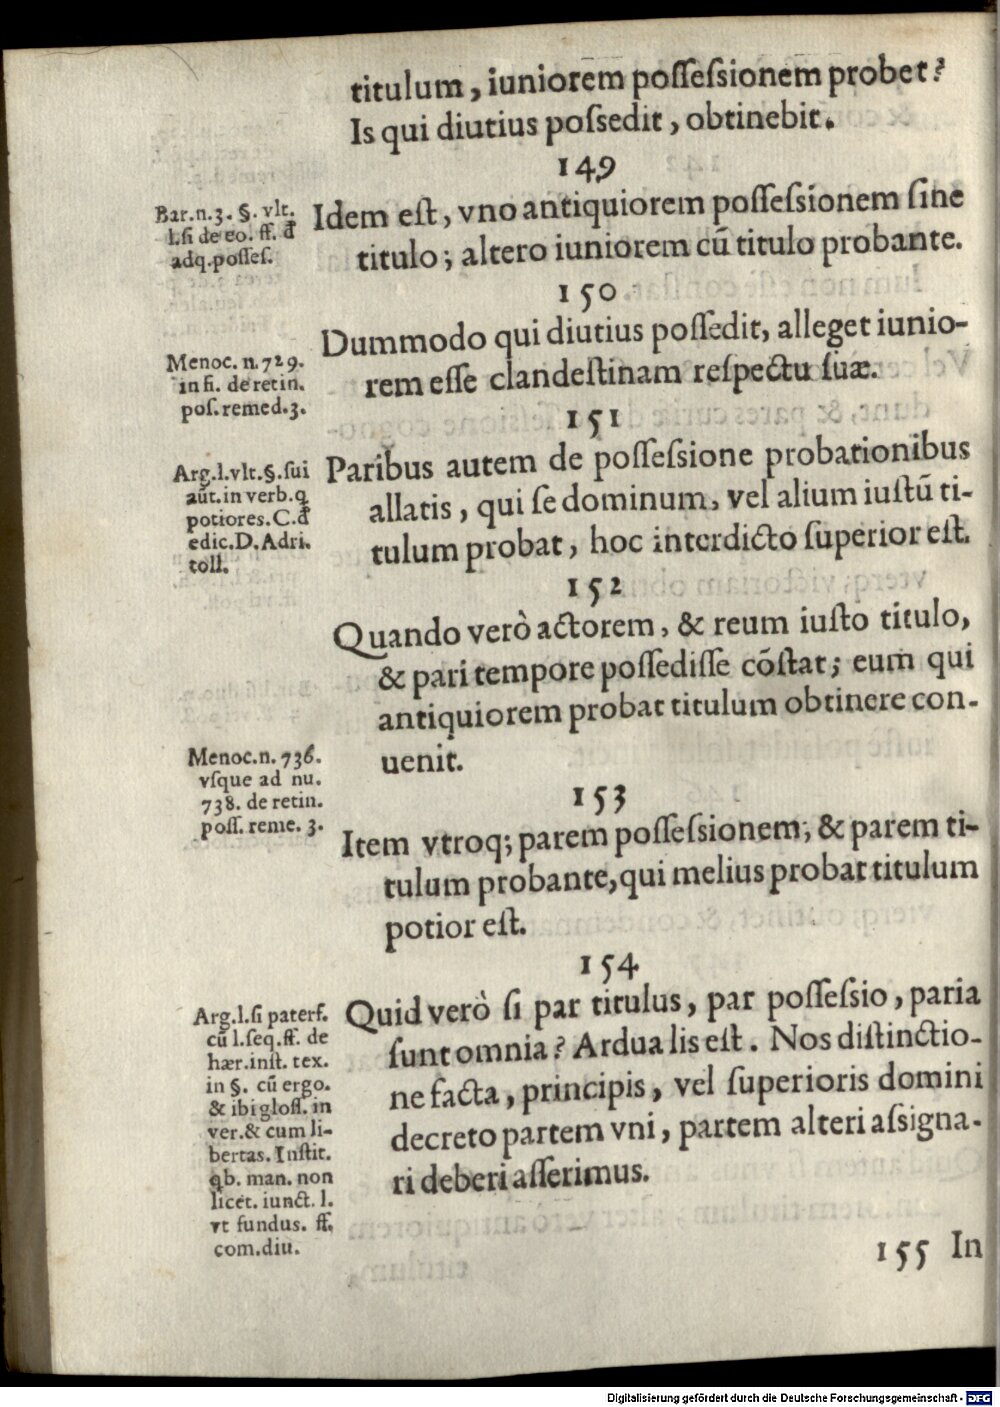 titulum, iuniorem poſſeſsionem probet?
Is qui diutius poſsedit, obtinebit.
149
Bar.n.3. §. vlt.
l.ſi de eo. ff. đ
adq.poſſeſ.
Idem eſt, vno antiquiorem poſſeſsionem ſine
titulo; altero iuniorem cū titulo probante.
150
Dummodo qui diutius poſſedit, alleget iunio-
rem eſſe clandeſtinam reſpectu ſuæ.
Menoc. n.729.
in fi. de retin.
poſ.remed.3.
151
Arg.l.vlt.§.ſui
aūt.in verb.q
potiores.C.đ
edic.D.Adri.
toll.
Paribus autem de poſſeſsione probationibus
allatis, qui ſe dominum, vel alium iuſtū ti-
tulum probat, hoc interdicto ſuperior eſt.
152
Quando verò actorem, & reum iuſto titulo,
& pari tempore poſſediſſe cōſtat; eum qui
antiquiorem probat titulum obtinere con-
uenit.
Menoc.n. 736.
vſque ad nu.
738. de retin.
poſſ. reme. 3.
153
Item vtroq; parem poſſeſsionem, & parem ti-
tulum probante, qui melius probat titulum
potior eſt.
154
Arg.l.ſi paterf.
cū l.ſeq.ff. de
hær.inſt. tex.
in §. cū ergo.
& ibi gloſſ. in
ver.& cum li-
bertas. Inſtit.
qb. man. non
licet. iunct. l.
vt fundus. ff.
com.diu.
Quid verò ſi par titulus, par poſſeſsio, paria
ſunt omnia? Ardua lis eſt. Nos diſtinctio-
ne facta, principis, vel ſuperioris domini
decreto partem vni, partem alteri aſsigna-
ri deberi aſſerimus.
155 In
Digitalisierung gefördert durch die Deutsche Forschungsgemeinschaft - DFG